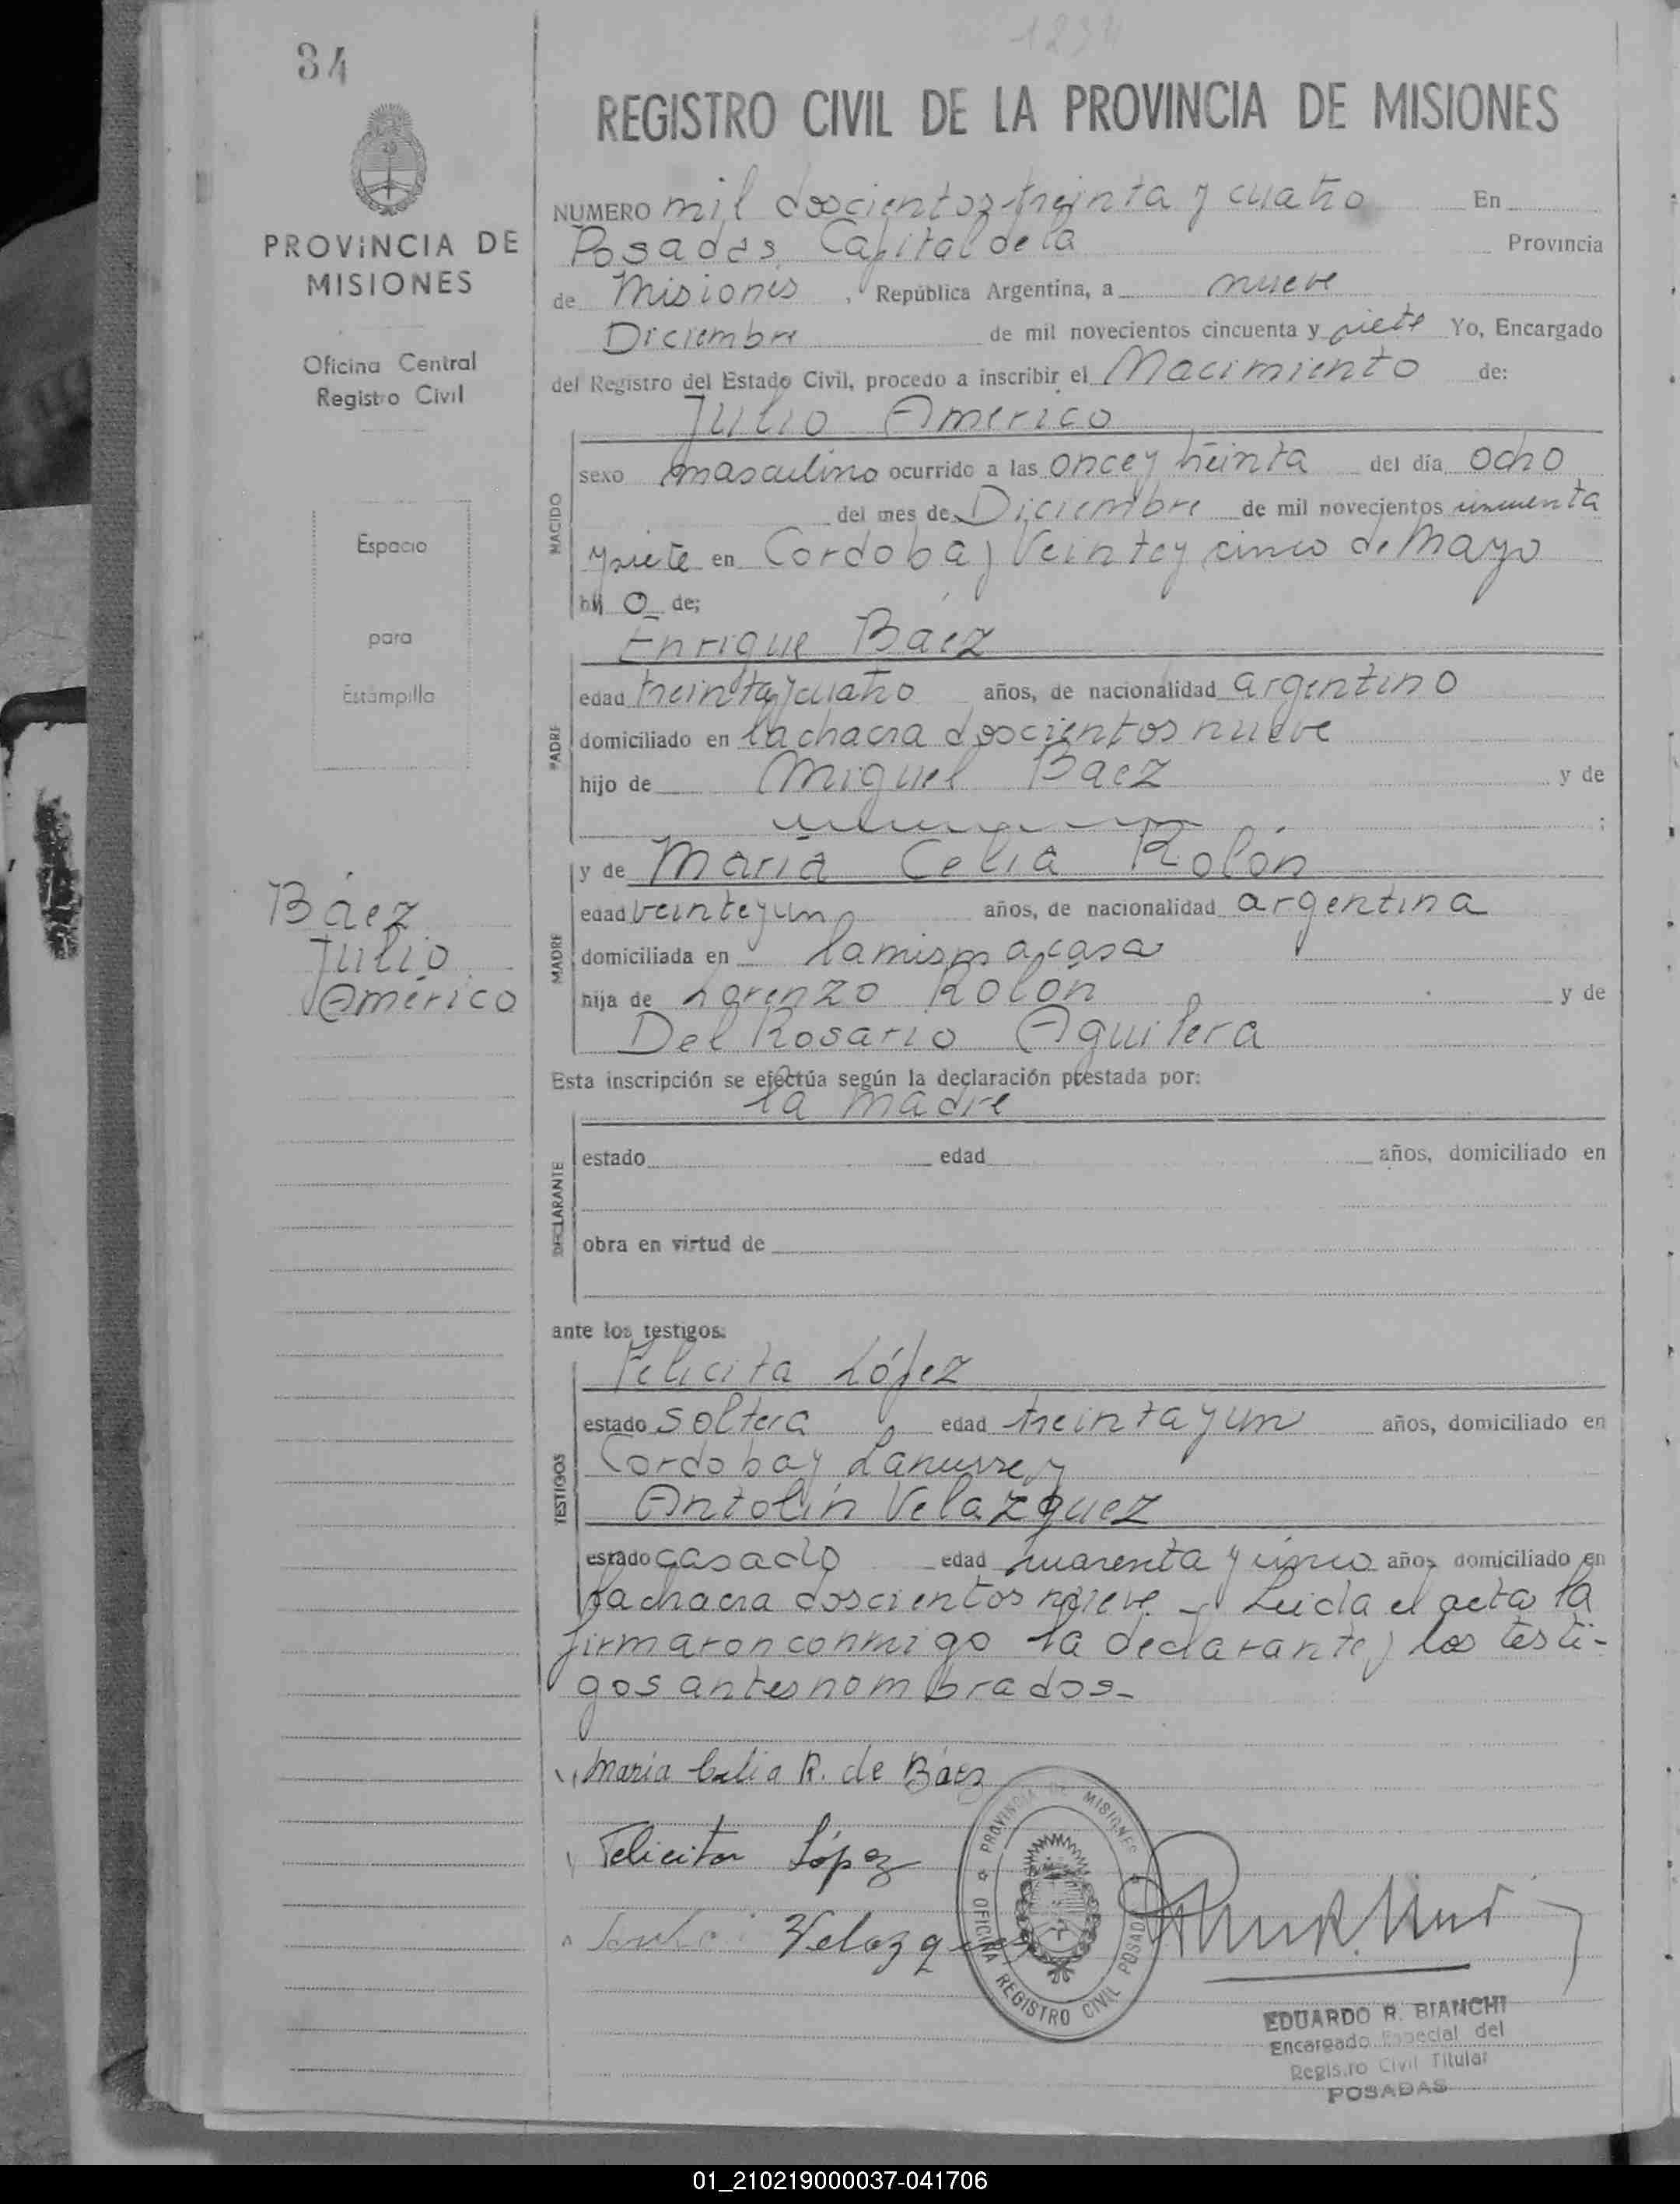 1234
34
REGISTRO CIVIL DE LA PROVINCIA DE MISIONES
PROVINCIA DE
MISIONES
Oficina Central
Registro Civil
Espacio
para
Estampilla
Báez
Julio
Américo
NUMERO mil doscientos treinta y cuatro En
Posadas, Capital de la Provincia
de Misiones, República Argentina, a nueve
Diciembre de mil novecientos cincuenta y siete Yo, Encargado
del Registro del Estado Civil, procedo a inscribir el Nacimiento de:
Julio Américo
NACIDO
sexo masculino ocurrido a las once y treinta del día ocho
del mes de Diciembre de mil novecientos cincuenta
y siete en Cordoba y Veinte y cinco de Mayo
hij o de;
Enrique Báez
PADRE
edad treinta y cuatro años, de nacionalidad argentino
domiciliado en la chacra doscientos nueve
hijo de Miguel Báez y de
;
y de María Celia Rolón
MADRE
edad veinte y un años, de nacionalidad argentina
domiciliada en la misma casa
hija de Lorenzo Rolón y de
Del Rosario Aguilera
Esta inscripción se efectúa según la declaración prestada por:
la madre
DECLARANTE
estado edad años, domiciliado en
obra en virtud de
ante los testigos:
Felicita López
TESTIGOS
estado soltera edad treinta y un años, domiciliado en
Cordoba y Lanusse y
Antolín Velazquez
estado casado edad cuarenta y cinco años, domiciliado en
la chacra doscientos nueve - Leida el acta la
firmaron conmigo la declarante y los testi-
gos antes nombrados-
María Celia R. de Báez
Felicita López
Velazquez
PROVINCIA DE MISIONES
OFICINA REGISTRO CIVIL POSADAS
EDUARDO R. BIANCHI
Encargado Especial del
Registro Civil Titular
POSADAS
01_210219000037-041706